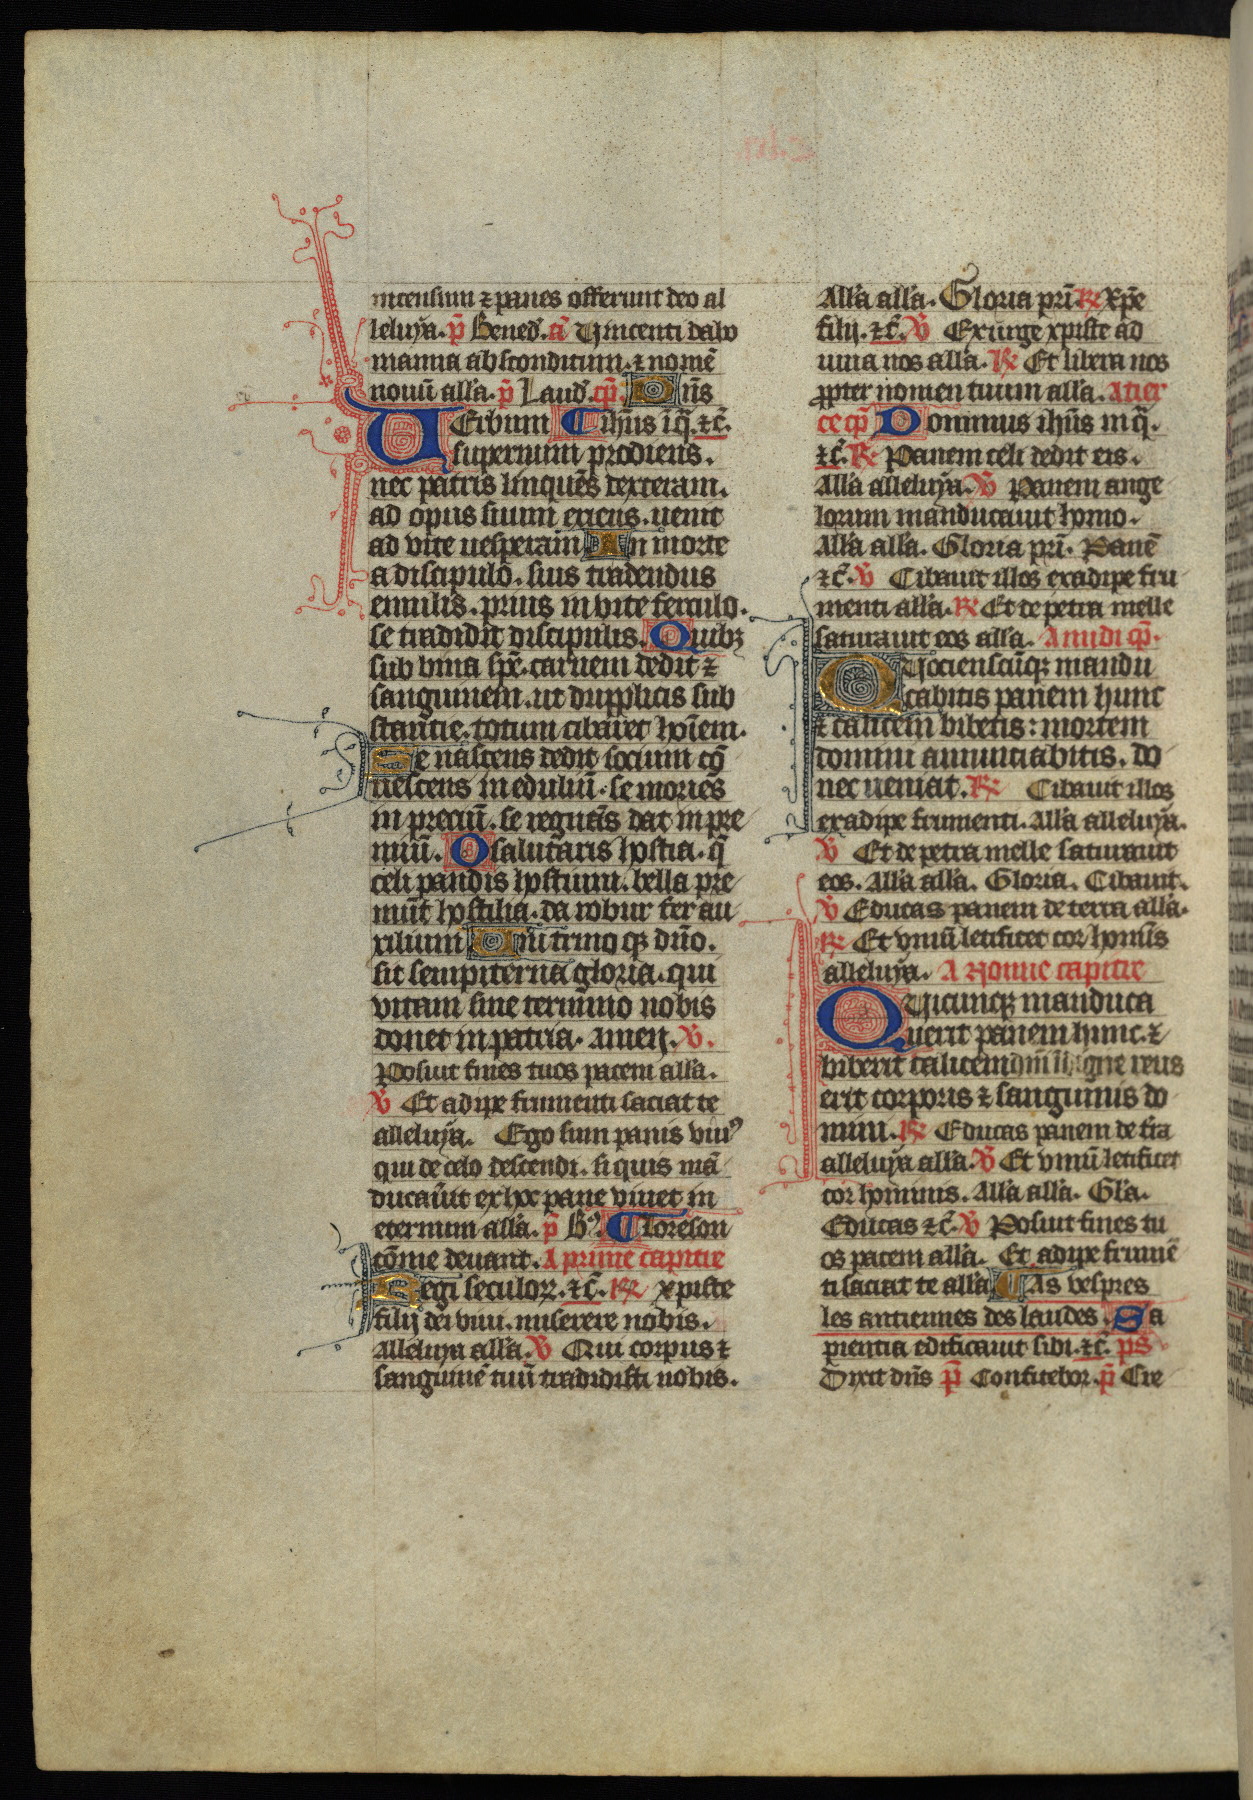 incensum ⁊ panes offerunt deo al
leluya. p̄ Bened̄. añ Vincenti dabo
manna absconditum. ⁊ nomē
nouū alla. p̄ Laud̄. cp̄. Dn̄s
ihūs i q̄. ⁊c̄.
VErbum
supernum prodiens.
nec patris linquēs dexteram.
ad opus suum exiens. uenit
ad vite uesperam In morte
a discipulo. suis tradendus
emulis. prius in vite ferculo.
se tradidit discipulis. Quibꝫ
sub bina spē. carnem dedit ⁊
sanguinem. ut dupplicis sub
stantie. totum cibaret hoīem.
Se nascens dedit socium cō
uescens in eduliū. se moriēs
in preciū. se regnās dat in pre
miū. O salutaris hostia. q̄
celi pandis hostium. bella pre
mūt hostilia. da robur fer au
xilium Uni trino qꝫ dn̄o.
sit sempiterna gloria. qui
vitam sine termino nobis
donet in patria. amen. ℣.
Posuit fines tuos pacem alla.
℣ Et adipe frumenti saciat te
alleluya. Ego sum panis viuꝰ
qui de celo descendi. si quis mā
ducau̇it ex hoc pane viuet in
eternum alla. p̄ Bꝰ. ¶ Loreson
cōme deuant. A prime capitle
Regi seculoꝝ. ⁊c̄. ℟ xpiste
filij dei viui. miserere nobis.
Alleluya alla. ℣ Qui corpus ⁊
sanguinē tuū tradidisti nobis.
Alla alla. Gloria pr̄i. ℟ Xp̄e
filij. ⁊c̄. ℣ Exurge xpiste ad
iuua nos alla. ℟ Et libera nos
ꝓpter nomen tuum alla. A tier
ce cp̄ Dominus ihūs in q̄.
⁊c̄. ℟ Panem celi dedit eis.
Alla alleluya. ℣ Panem ange
lorum manducauit homo.
Alla alla. Gloria pr̄i. Panē
⁊c̄. ℣ Cibauit illos ex adipe fru
menti alla. ℟ Et de petra melle
saturauit eos alla. A midi cp̄.
QVociensciūqꝫ mandu
cabitis panem hunc
⁊ calicem bibetis: mortem
domini annunciabitis. do
nec ueniat. ℟ Cibauit illos
ex adipe frumenti. Alla alleluya.
℣ Et de petra melle saturauit
eos. Alla alla. Gloria. Cibauit.
℣ Educas panem de terra alla.
℟ Et vinū letificet cor hominis
alleluya. A Nonne capitle
QVicunqꝫ manduca
uerit panem hunc. ⁊
biberit calicem dn̄i indigne reus
erit corporis ⁊ sanguinis do
mini. ℟ Educas panem de tra
alleluya alla. ℣ Et vinū letificet
cor hominis. Alla alla. Gla.
Educas ⁊c̄. ℣ Posuit fines tu
os pacem alla. Et adipe frumē
ti saciat te alla ¶ As vespres
les antiennes des laudes. Sa
pientia edificauit sibi. ⁊c̄. ps̄
Dixit dn̄s p̄ Confitebor. p̄ Cre